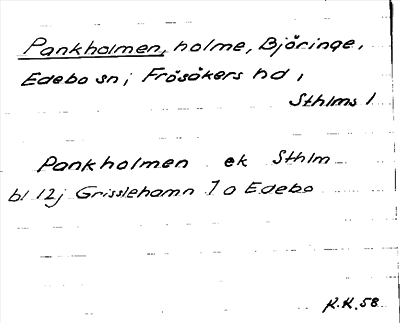 Pankholmen, holme, Björinge,
Edebo sn; Frösåkers hd,
Sthlms l
Pankholmen ek Sthlm
bl 12j Grisslehamn 7 o Edebo
K.K.58